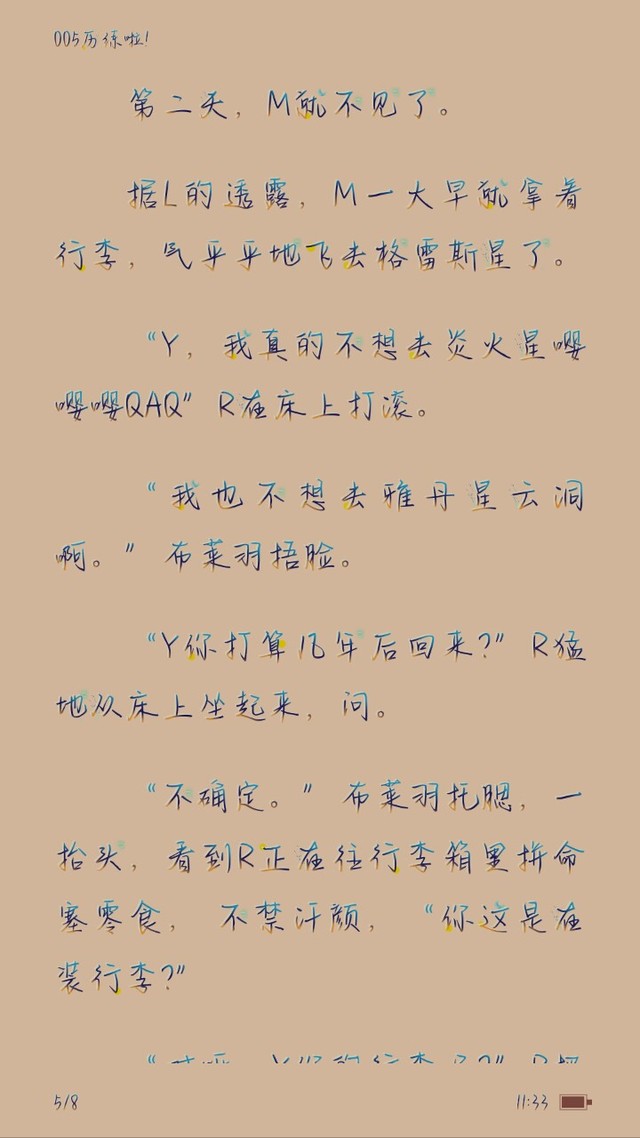 005历练啦!
第二天，M就不见了。
据L的透露，M一大早就拿着
行李，气乎乎地飞去格雷斯星了。
“Y，我真的不想去炎火星嘤
嘤嘤QAQ” R在床上打滚。
“我也不想去雅丹星云洞
啊。” 布莱羽捂脸。
“Y你打算几年后回来?” R猛
地从床上坐起来，问。
“不确定。” 布莱羽托腮，一
抬头，看到R正在往行李箱里拼命
塞零食，不禁汗颜，“你这是在
装行李?”
5/8
11:33